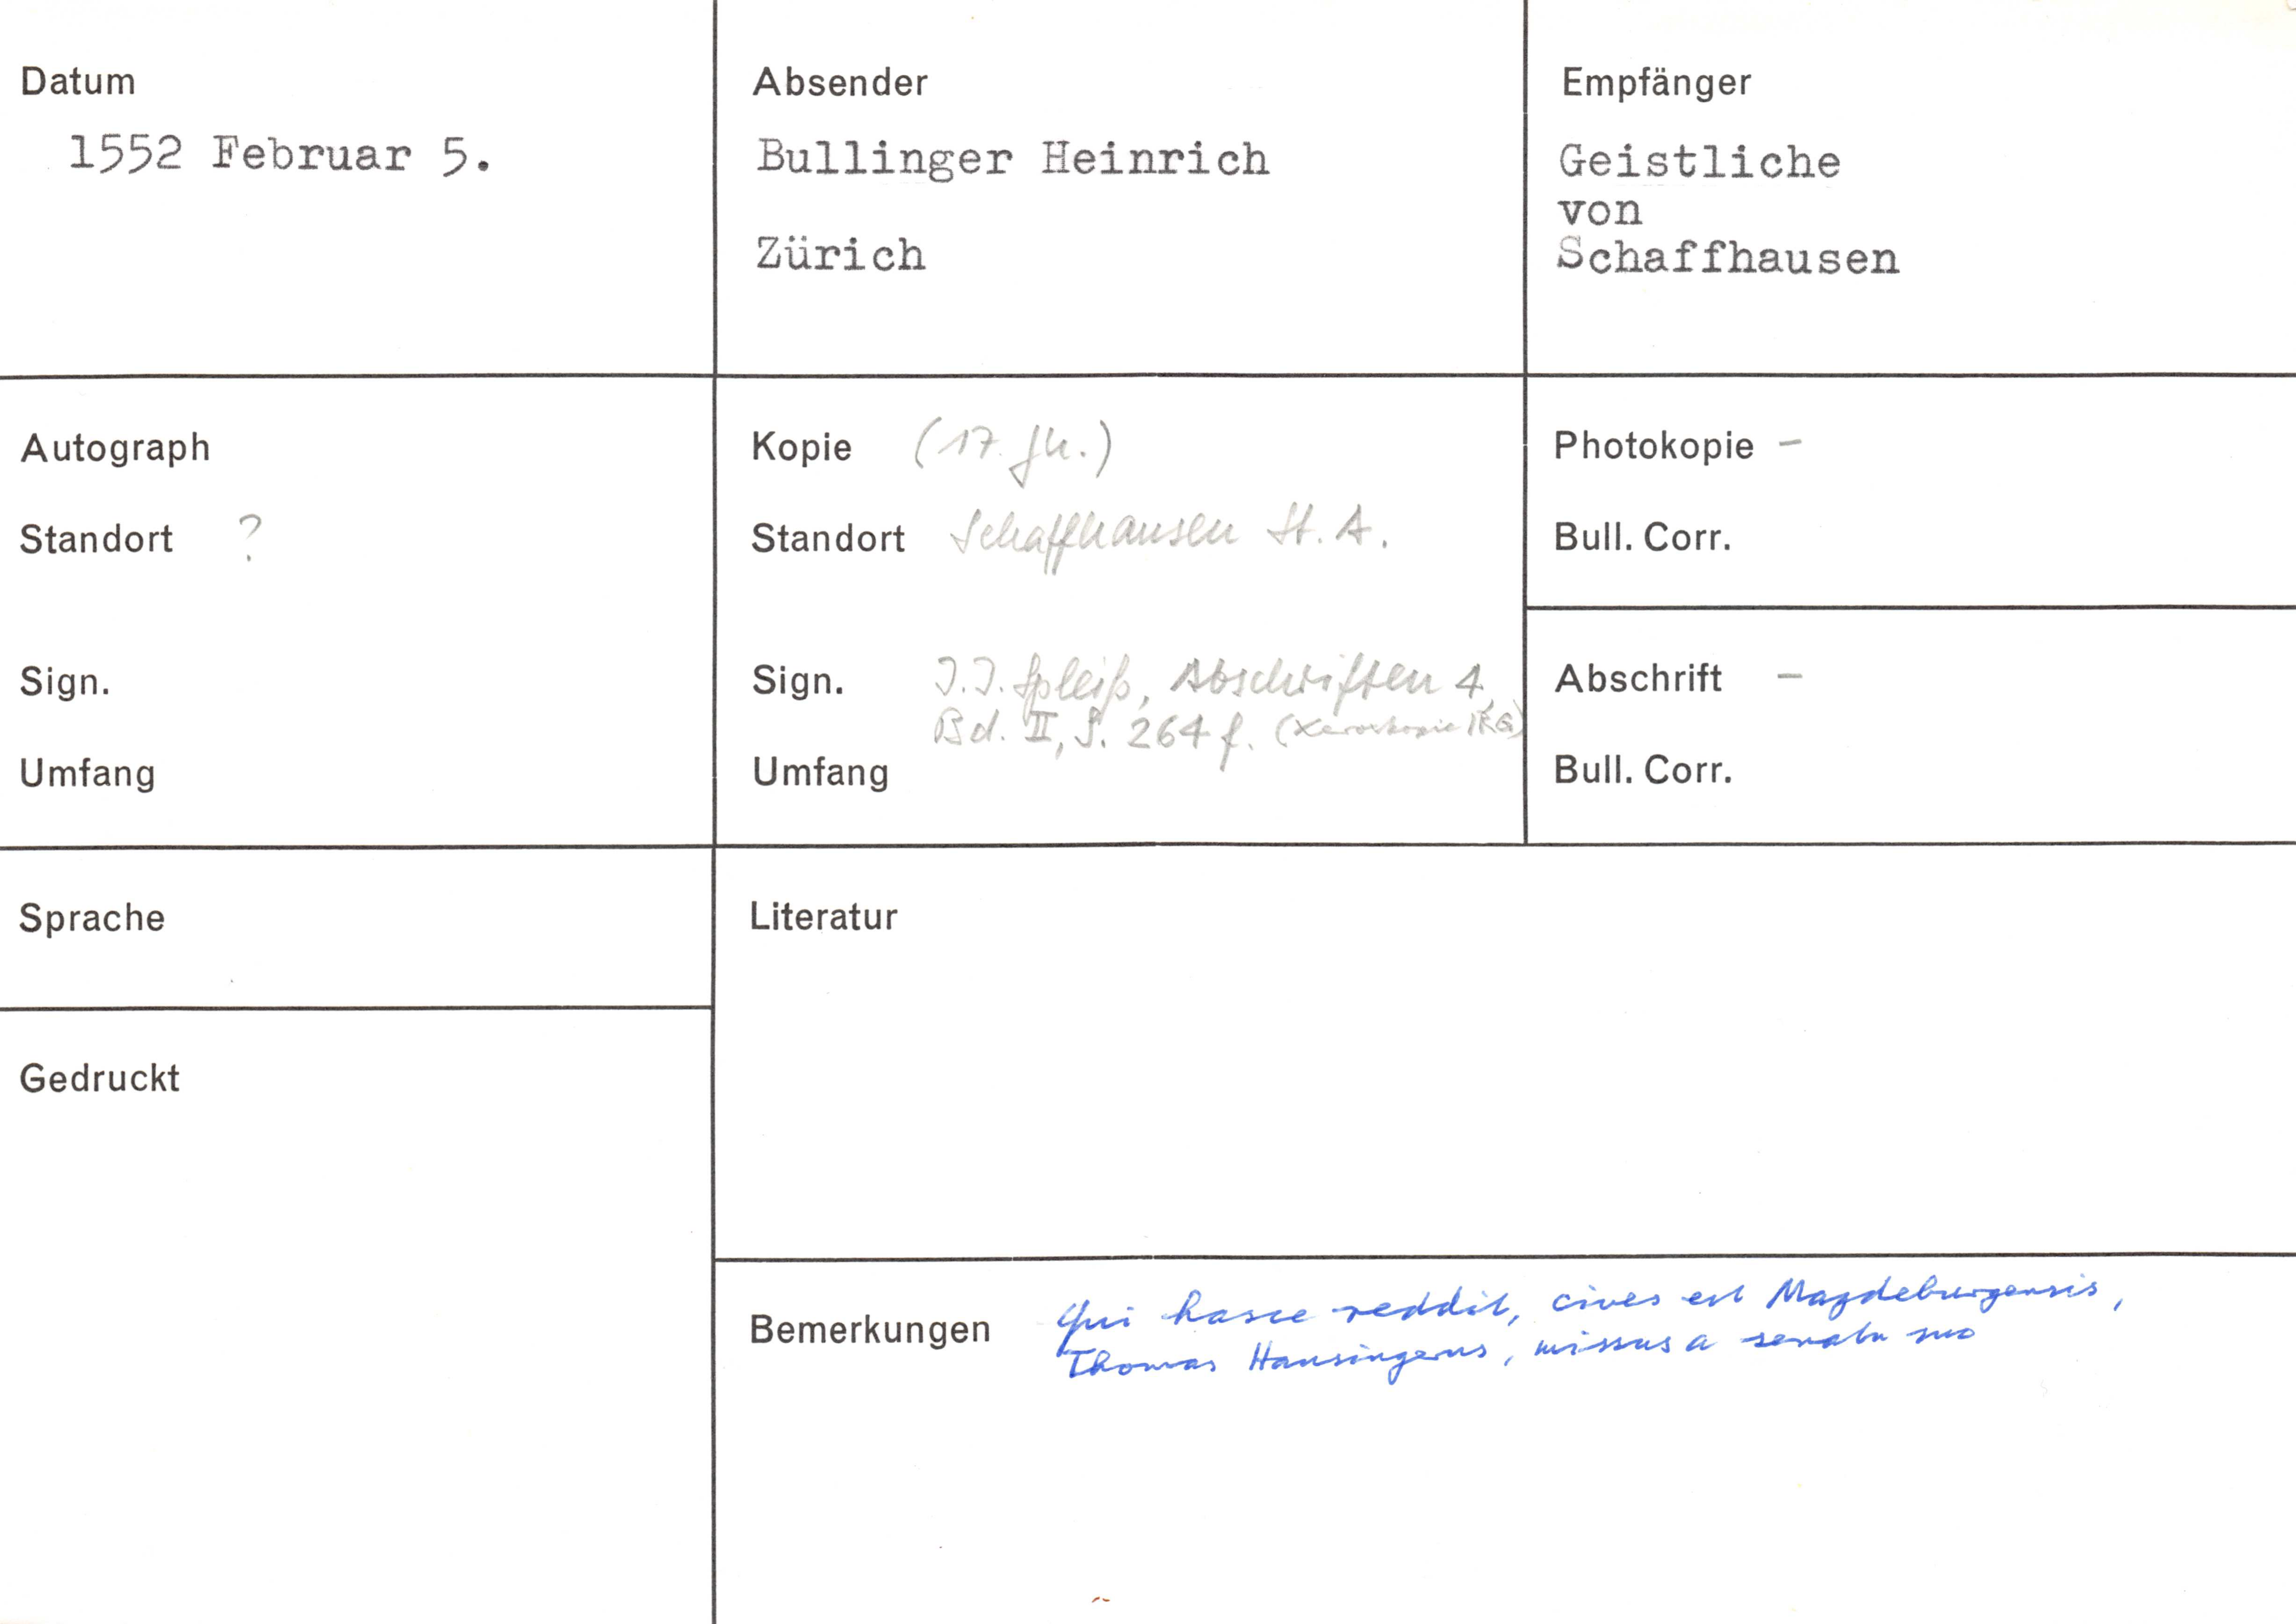 Datum
1552 Februar 5.
Absender
Bullinger Heinrich
Zürich
Empfänger
Geistliche
von
Schaffhausen
Autograph
Standort ?
Sign.
Umfang
Kopie (17. Jh.)
Standort Schaffhausen St. A.
Sign. J.J. Spleiß, Abschriften 4,
Bd. II, S. 264 f. (Xerokopie IRG)
Umfang
Photokopie –
Bull. Corr.
Abschrift –
Bull. Corr.
Sprache
Gedruckt
Literatur
Bemerkungen Qui hasce reddit, cives est Magdeburgensis,
Thomas Hansingerus, missus a senatu suo